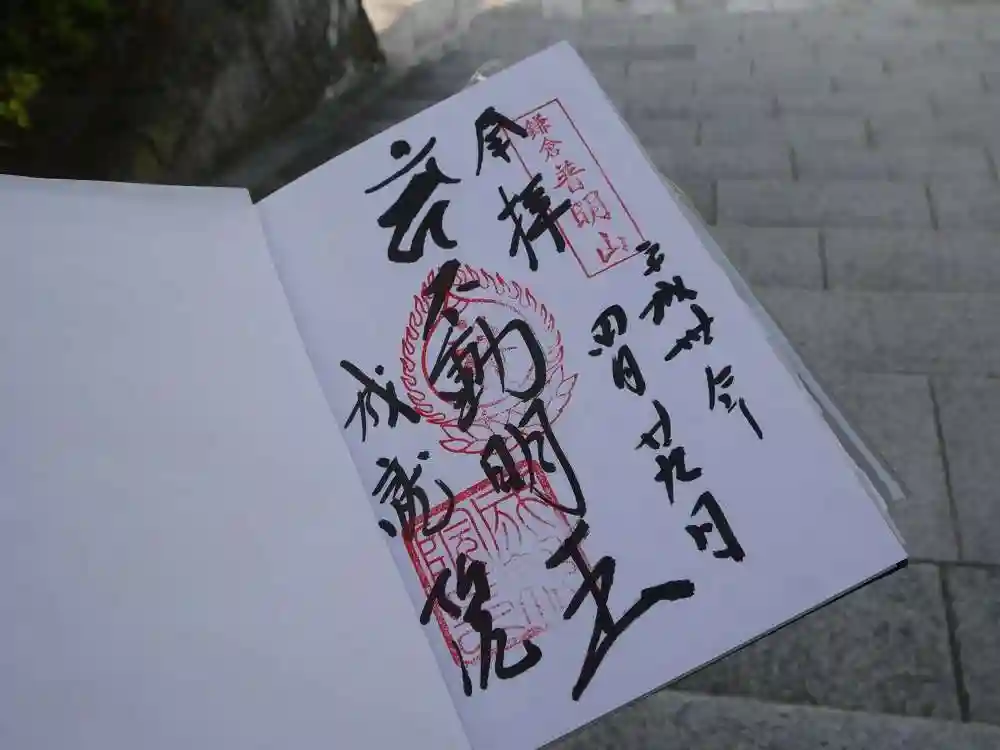 鎌倉 普明山
奉拝
平成
年
四月廿九日
不動明王
成就院